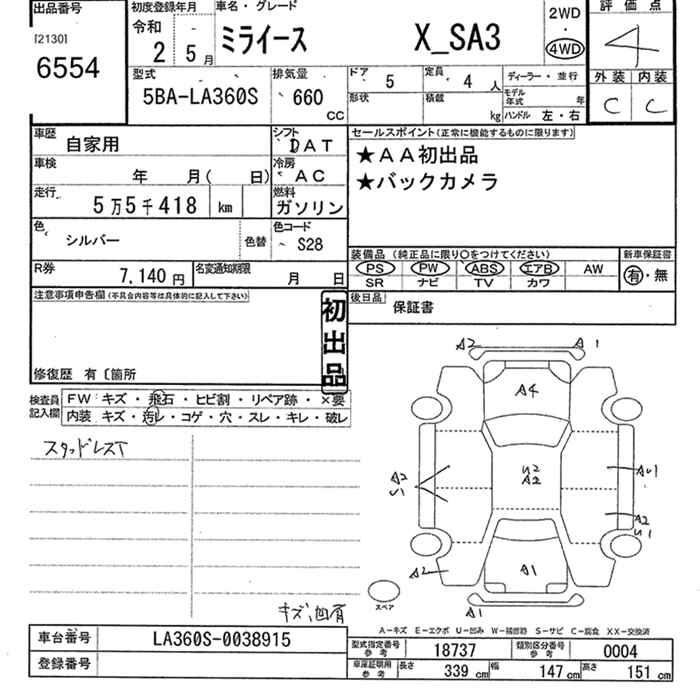 出品番号
[2130]
6554
初度登録年月
令和
2 5月
車名・グレード
ミライース X_SA3
2WD
・
4WD
評価点
4
外装 内装
C C
型式
5BA-LA360S
排気量
660
CC
ドア 5
形状
定員 4 人
積載 kg
ディーラー・並行
モデル年式 年
ハンドル 左・右
車歴 自家用
シフト DAT
車検 年 月( 日)
冷房 AC
走行 5万5千418 km
燃料 ガソリン
色 シルバー
色替
色コード S28
R券 7,140 円
名変通知期限 月 日
セールスポイント(正常に機能するものに限ります)
★AA初出品
★バックカメラ
装備品 (純正品に限り○をつけてください)
PS PW ABS エアB AW
SR ナビ TV カワ
新車保証書
有・無
後日品 保証書
注意事項申告欄 (不具合内容等は具体的に記入して下さい)
初出品
修復歴 有〔箇所
検査員記入欄
FW キズ・飛石・ヒビ割・リペア跡・×要
内装 キズ・汚レ・コゲ・穴・スレ・キレ・破レ
スタッドレスT
キズ、凹有
A2 A1
A4
U2
A2
A2
U1
AU1
A2
U1
A2
A1
A1
スペア
A-キズ E-エクボ U-凹み W-補修跡 S-サビ C-腐食 XX-交換済
車台番号 LA360S-0038915
登録番号
型式指定番号 参考 18737
類別区分番号 参考 0004
車庫証明用 参考 長さ 339 cm 幅 147 cm 高さ 151 cm